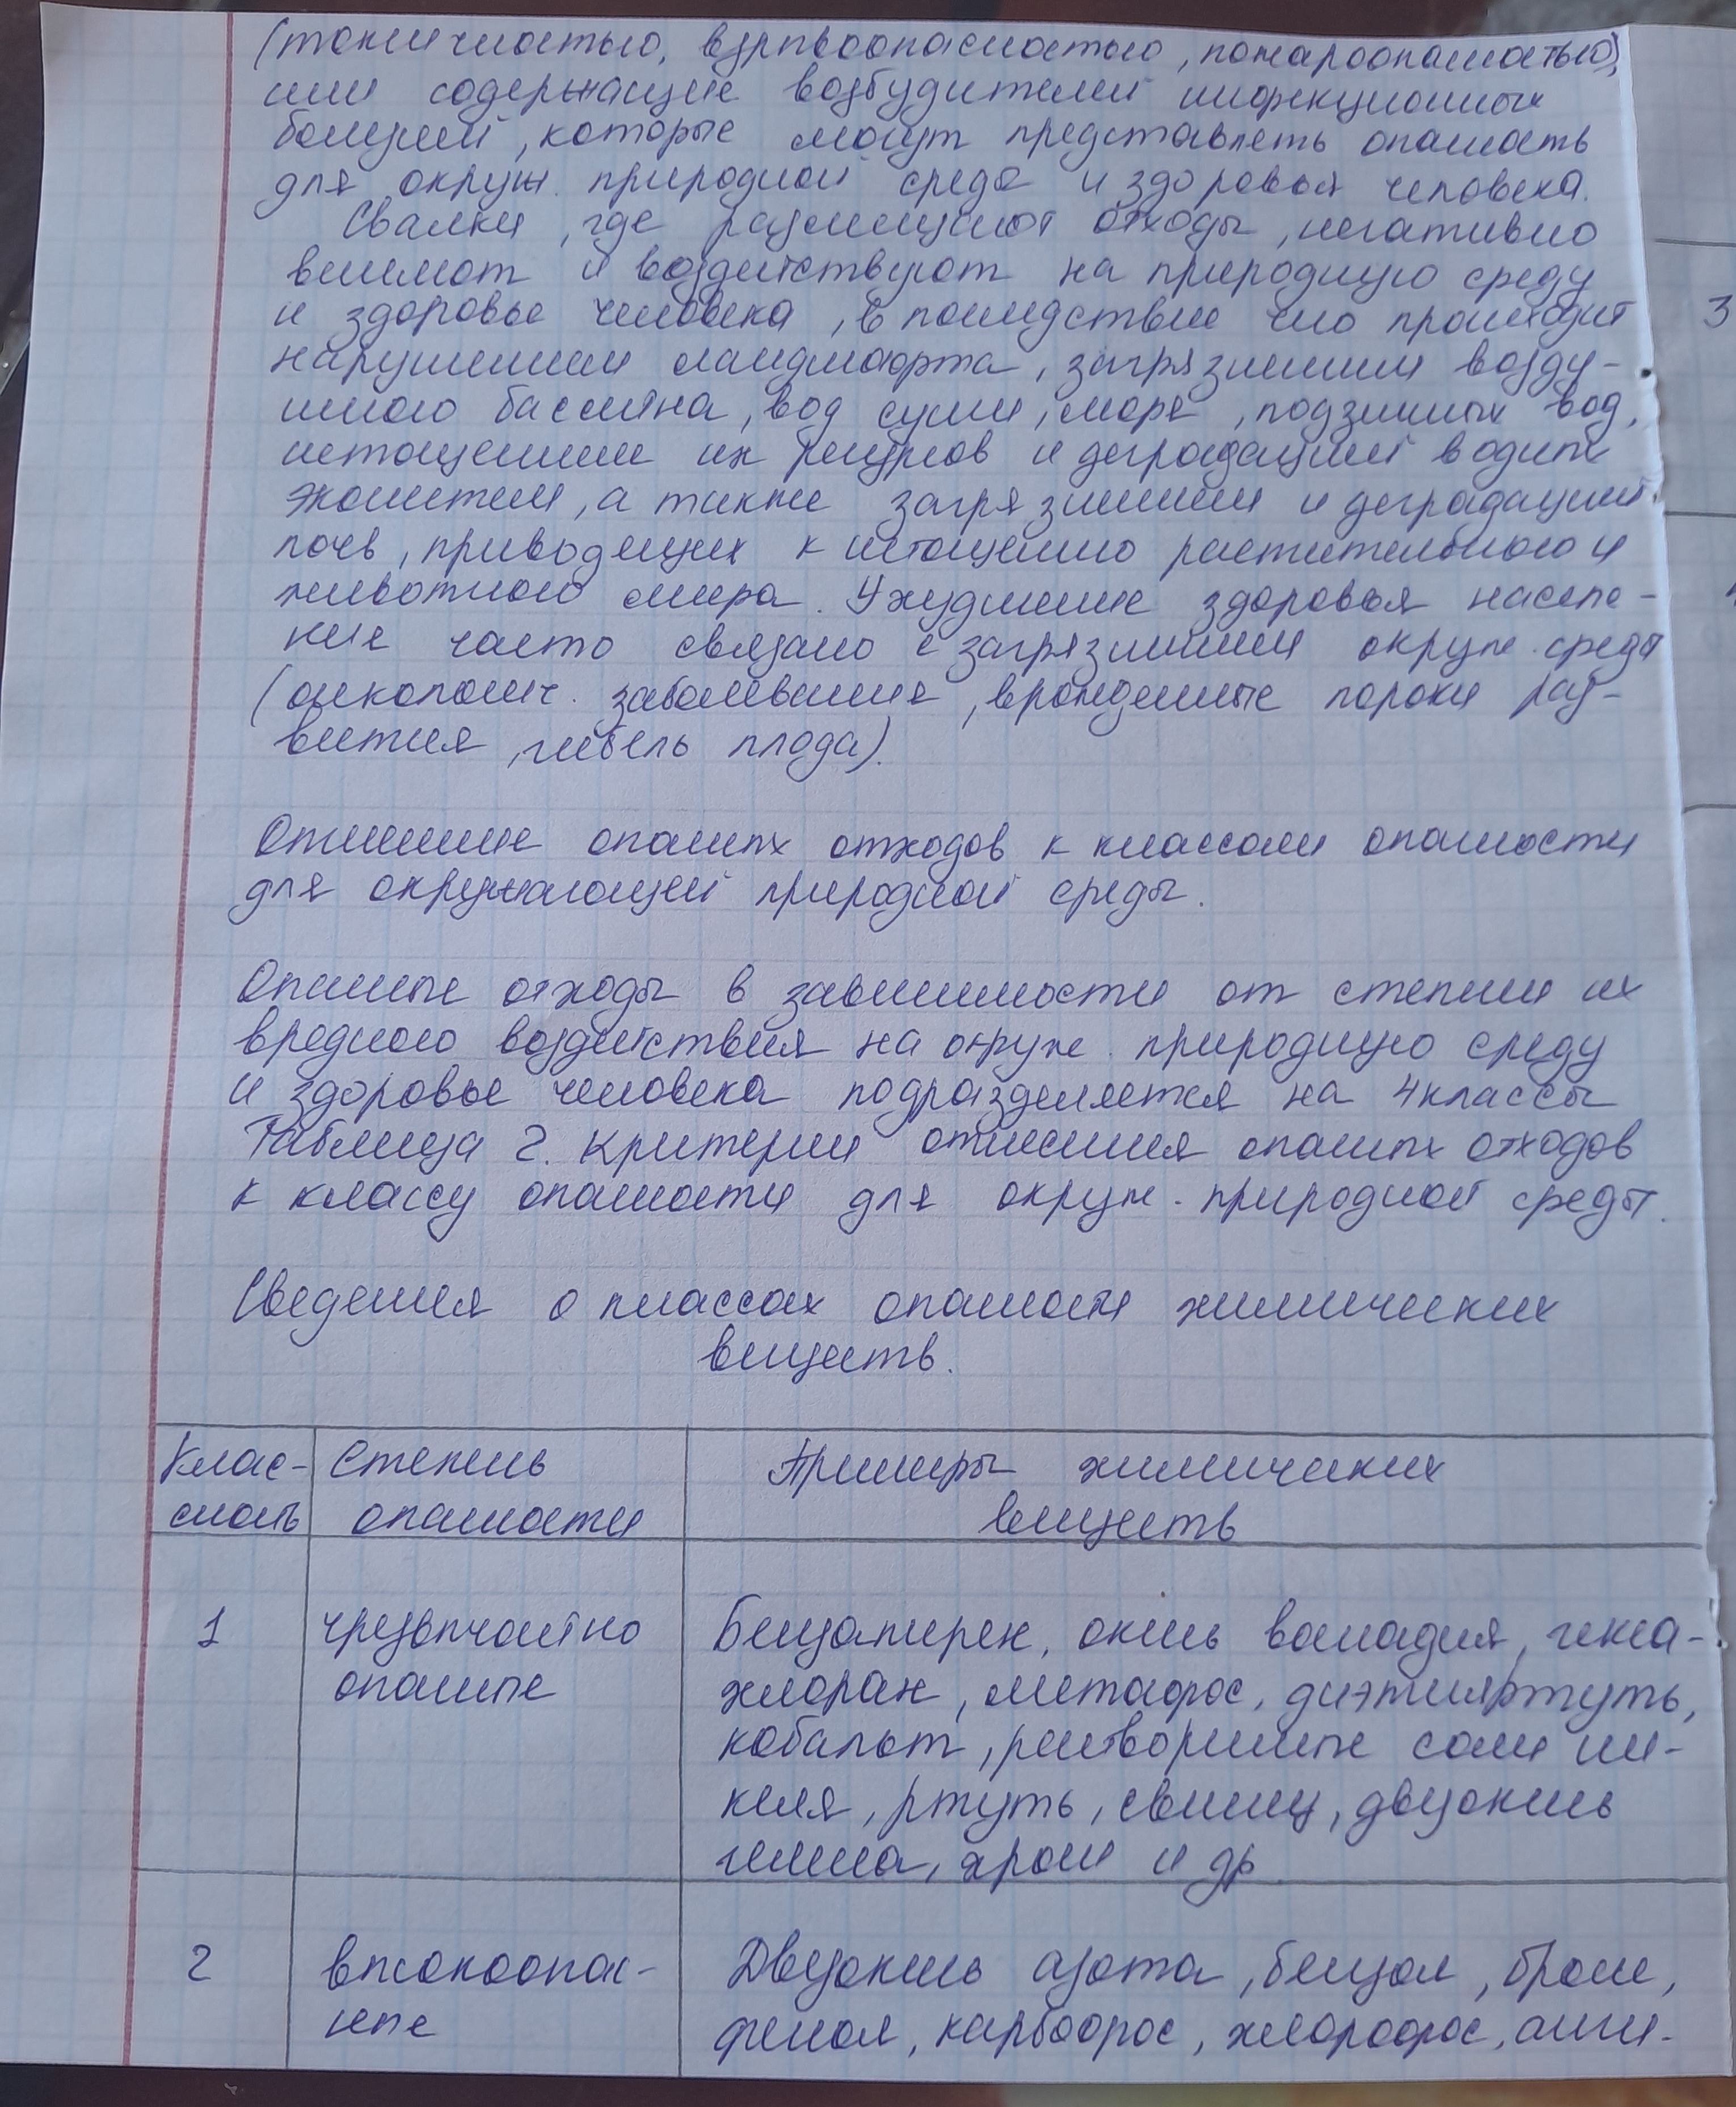 (токсичностью, взрывоопасностью, пожароопасностью),
или содержащие возбудителей инфекционных
болезней, которые могут представлять опасность
для окруж. природной среды и здоровья человека.
Свалки, где размещают отходы, негативно
влияют и воздействуют на природную среду
и здоровье человека, в последствие чего происходит
нарушением ландшафта, загрязнением возду-
шного бассейна, вод суши, моря, подземных вод,
истощением их ресурсов и деградацией водных
экосистем, а также загрязнением и деградацией
почв, приводящих к истощению растительного и
животного мира. Ухудшение здоровья населе-
ние часто связано с загрязнением окруж. среды
(онкологич. заболевания, врожденные пороки раз-
вития, гибель плода).
Отнесение опасных отходов к классам опасности
для окружающей природной среды.
Опасные отходы в зависимости от степени их
вредного воздействия на окруж. природную среду
и здоровье человека подразделяется на 4 классы
Таблица 2. Критерии отнесения опасных отходов
к классу опасности для окруж. природной среды.
Сведения о классах опасности химических
веществ.
Клас-
сность
Степень
опасности
Примеры химических
веществ
1
чрезвычайно
опасные
Бензапирен, окись ванадия, гекса-
хлоран, метафос, диэтилртуть,
кобальт, растворимые соли ни-
келя, ртуть, свинец, двуокись
селена, хром и др
2
высокоопас-
ные
Двуокись азота, бензол, бром,
фенол, карбофос, хлорофос,
3